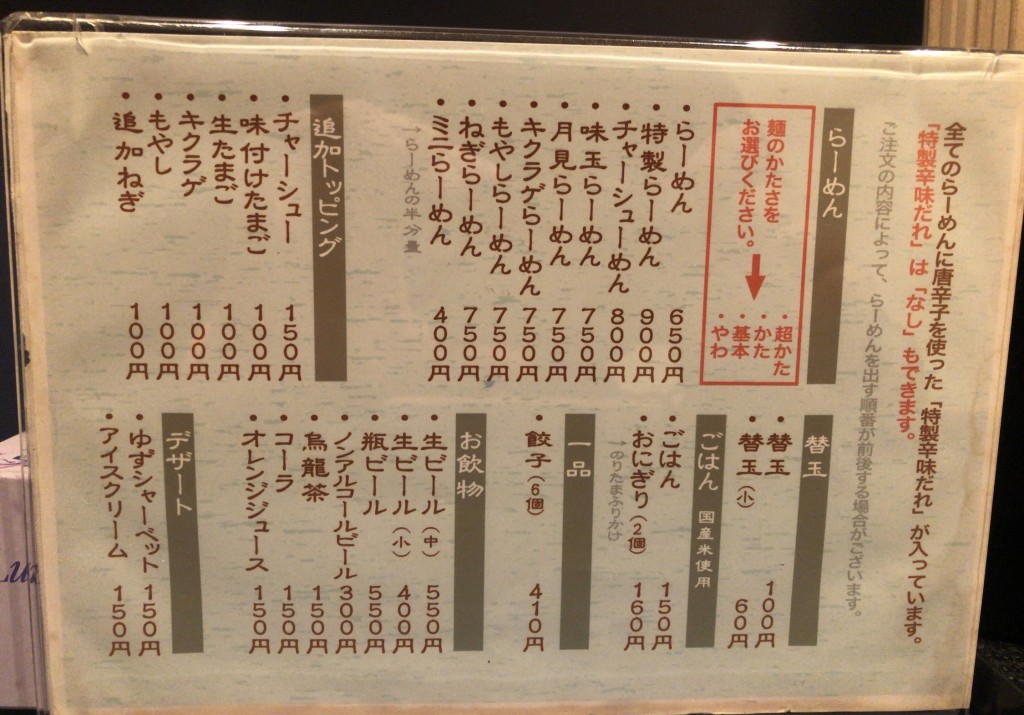 全てのらーめんに唐辛子を使った「特製辛味だれ」が入っています。
「特製辛味だれ」は「なし」もできます。
ご注文の内容によって、らーめんを出す順番が前後する場合がございます。
らーめん
麺のかたさを
お選びください。
・超かた
・かた
・基本
・やわ
・らーめん 650円
・特製らーめん 900円
・チャーシューめん 800円
・味玉らーめん 750円
・月見らーめん 750円
・キクラゲらーめん 750円
・もやしらーめん 750円
・ねぎらーめん 750円
・ミニらーめん 400円
→らーめんの半分量
追加トッピング
・チャーシュー 150円
・味付けたまご 100円
・生たまご 100円
・キクラゲ 100円
・もやし 100円
・追加ねぎ 100円
替玉
・替玉 100円
・替玉(小) 60円
ごはん 国産米使用
・ごはん 150円
・おにぎり(2個) 160円
→のりたまふりかけ
一品
・餃子(6個) 410円
お飲物
・生ビール(中) 550円
・生ビール(小) 400円
・瓶ビール 550円
・ノンアルコールビール 300円
・烏龍茶 150円
・コーラ 150円
・オレンジジュース 150円
デザート
・ゆずシャーベット 150円
・アイスクリーム 150円